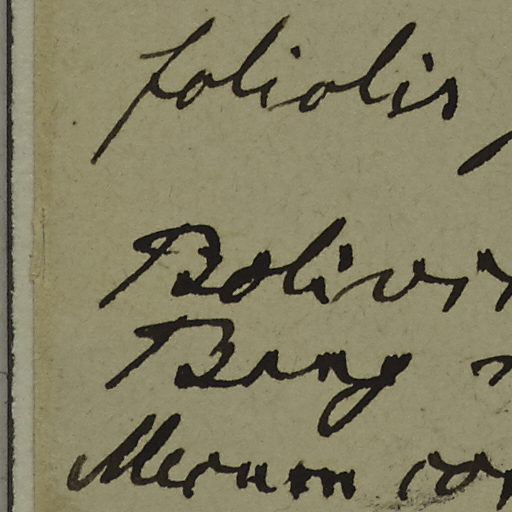 foliolis
Bolivi
Bang
Merum